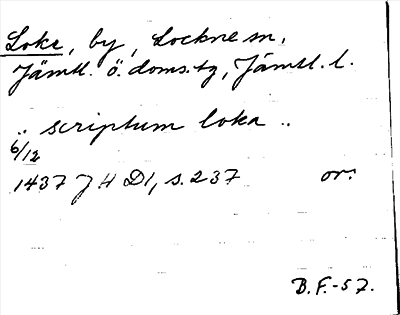 Loke, by, Lockne sn,
Jämtl. ö. doms.tg, Jämtl. l.
.. scriptum loka ..
6/12
1437 JHD1, s. 237 or.
B.F.-57.